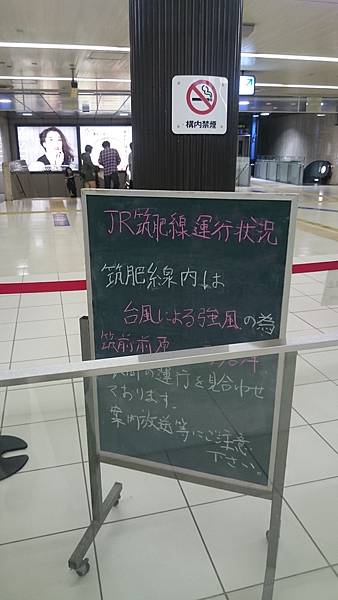 構内禁煙
JR筑肥線運行状況
筑肥線内は
台風による強風の為
筑前前原
間の運行を見合わせ
ております。
案内放送等にご注意
下さい。